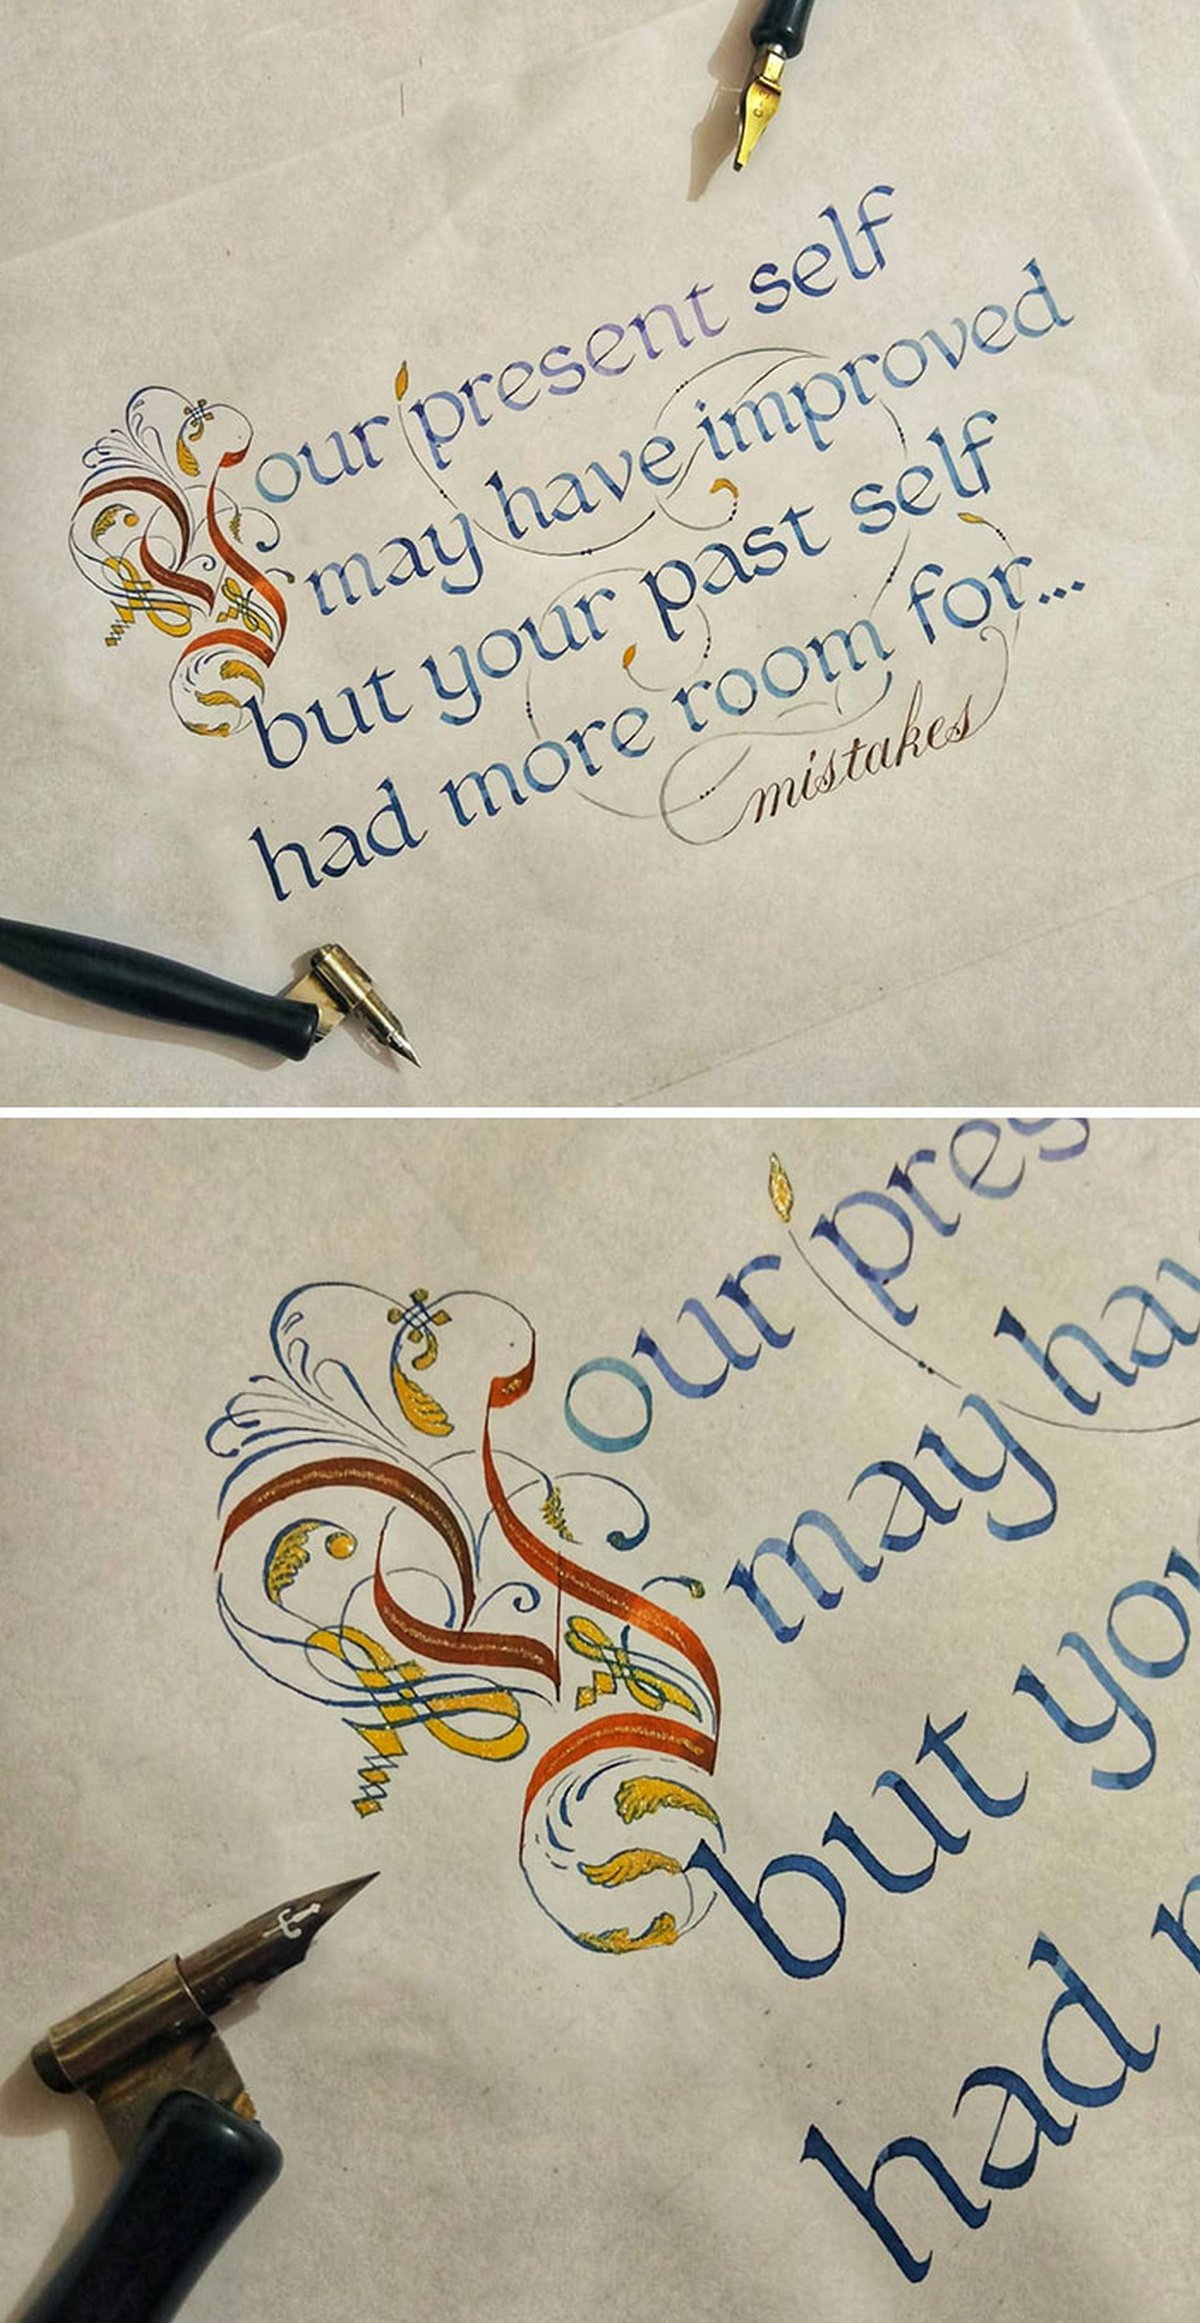 Your present self
may have improved
but your past self
had more room for...
mistakes
C-3
Your pres
may hav
but you
had m